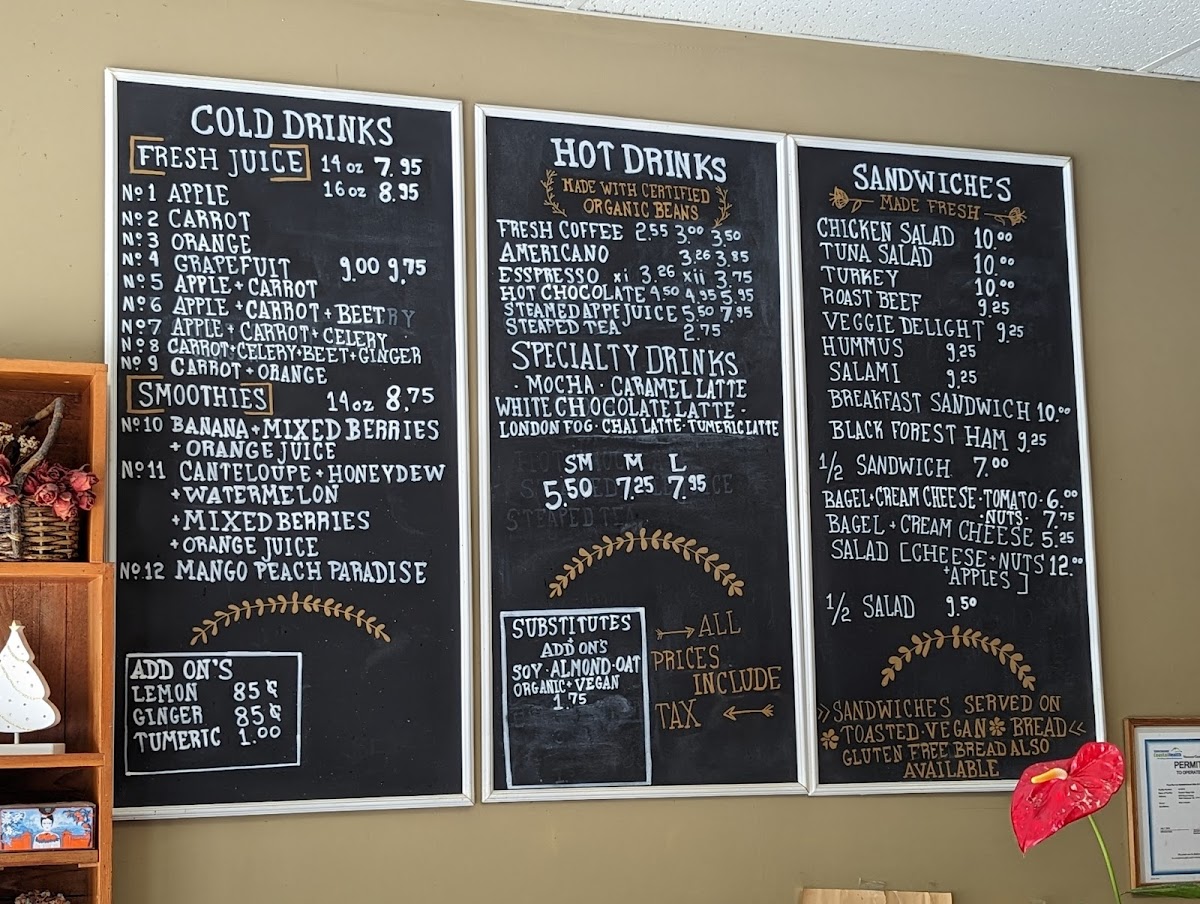 COLD DRINKS
FRESH JUICE 14 oz 7.95
16 oz 8.95
Nº1 APPLE
Nº2 CARROT
Nº3 ORANGE
Nº4 GRAPEFUIT 9.00 9.75
Nº5 APPLE + CARROT
Nº6 APPLE + CARROT + BEETRY
Nº7 APPLE + CARROT + CELERY
Nº8 CARROT + CELERY + BEET + GINGER
Nº9 CARROT + ORANGE
SMOOTHIES 14 oz 8.75
Nº10 BANANA + MIXED BERRIES
+ ORANGE JUICE
Nº11 CANTELOUPE + HONEYDEW
+ WATERMELON
+ MIXED BERRIES
+ ORANGE JUICE
Nº.12 MANGO PEACH PARADISE
ADD ON'S
LEMON 85¢
GINGER 85¢
TUMERIC 1.00
HOT DRINKS
MADE WITH CERTIFIED
ORGANIC BEANS
FRESH COFFEE 2.55 3.00 3.50
AMERICANO 3.26 3.85
ESSPRESSO xi 3.26 xii 3.75
HOT CHOCOLATE 4.50 4.95 5.95
STEAMED APPE JUICE 5.50 7.95
STEAPED TEA 2.75
SPECIALTY DRINKS
· MOCHA · CARAMEL LATTE
WHITE CHOCOLATE LATTE ·
LONDON FOG · CHAI LATTE · TUMERIC LATTE
SM M L
5.50 7.25 7.95
STEAPED TEA
SUBSTITUTES
+
ADD ON'S
SOY · ALMOND · OAT
ORGANIC + VEGAN
1.75
ALL
PRICES
INCLUDE
TAX
SANDWICHES
MADE FRESH
CHICKEN SALAD 10.00
TUNA SALAD 10.00
TURKEY 10.00
ROAST BEEF 9.25
VEGGIE DELIGHT 9.25
HUMMUS 9.25
SALAMI 9.25
BREAKFAST SANDWICH 10.00
BLACK FOREST HAM 9.25
1/2 SANDWICH 7.00
BAGEL + CREAM CHEESE · TOMATO · 6.00
· NUTS · 7.75
BAGEL + CREAM CHEESE 5.25
SALAD [CHEESE + NUTS 12.00
+ APPLES]
1/2 SALAD 9.50
SANDWICHES SERVED ON
TOASTED · VEGAN BREAD
GLUTEN FREE BREAD ALSO
AVAILABLE
PERMIT
TO OPERATE